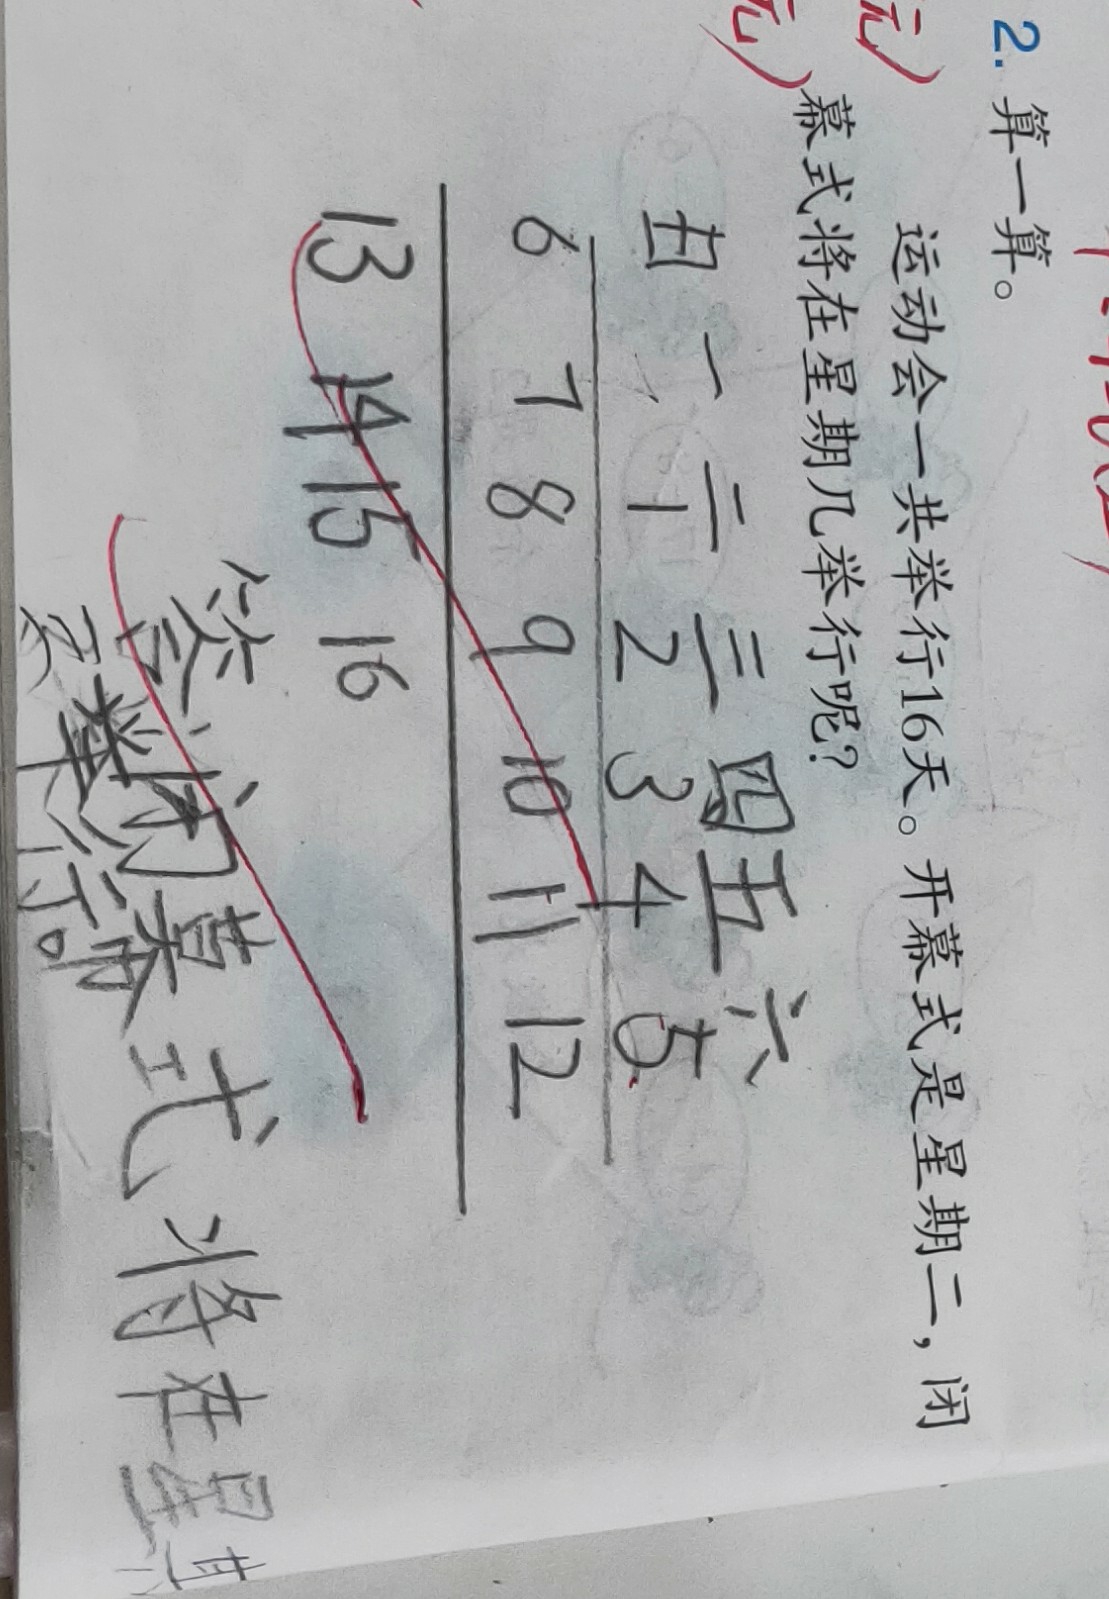 2. 算一算。
运动会一共举行16天。开幕式是星期二，闭
幕式将在星期几举行呢？
日 一 二 三 四 五 六
1 2 3 4 5
6 7 8 9 10 11 12
13 14 15 16
答：闭幕式将在星期
三举行。
元)
元)